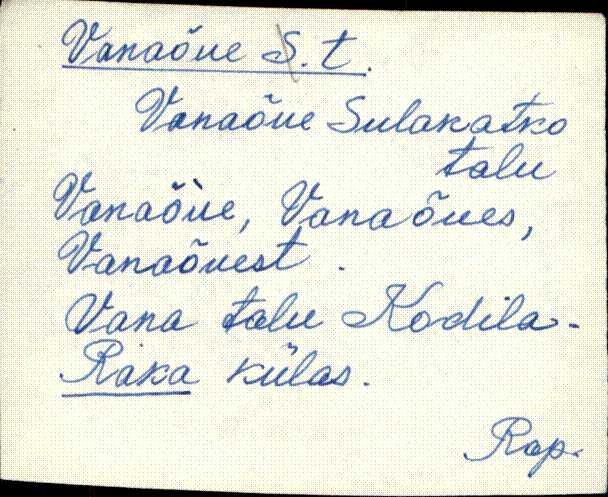 Vanaõue S. t.
Vanaõue Sulakatko
talu
Vanaõ̀ue, Vanaõues,
Vanaõuest.
Vana talu Kodila-
Räka külas.
Rap.